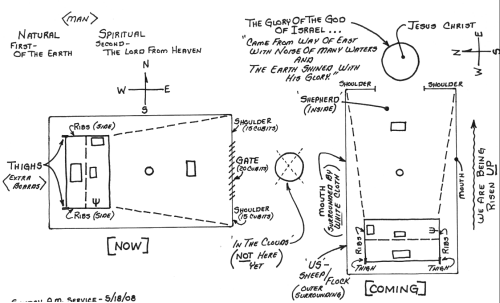 <MAN>
NATURAL
FIRST-
OF THE EARTH
SPIRITUAL
SECOND-
THE LORD FROM HEAVEN
N
W E
S
RIBS (SIDE)
THIGHS
<EXTRA BOARDS>
RIBS (SIDE)
Ψ
SHOULDER
(15 CUBITS)
GATE
(20 CUBITS)
SHOULDER
(15 CUBITS)
[NOW]
THE GLORY OF THE GOD
OF ISRAEL...
"CAME FROM WAY OF EAST
WITH NOISE OF MANY WATERS
AND
THE EARTH SHINED WITH
HIS GLORY."
JESUS CHRIST
E
N S
SHOULDER
SHOULDER
'SHEPHERD'
(INSIDE)
MOUTH
(SURROUNDED BY
WHITE CLOTH)
MOUTH
WE ARE BEING
RISEN UP
'IN THE CLOUDS'
(NOT HERE
YET)
'US'-
SHEEP/
FLOCK
(OUTER
SURROUNDING)
RIBS
Ψ
RIBS
THIGH
THIGH
[COMING]
A.M. SERVICE - 5/18/08